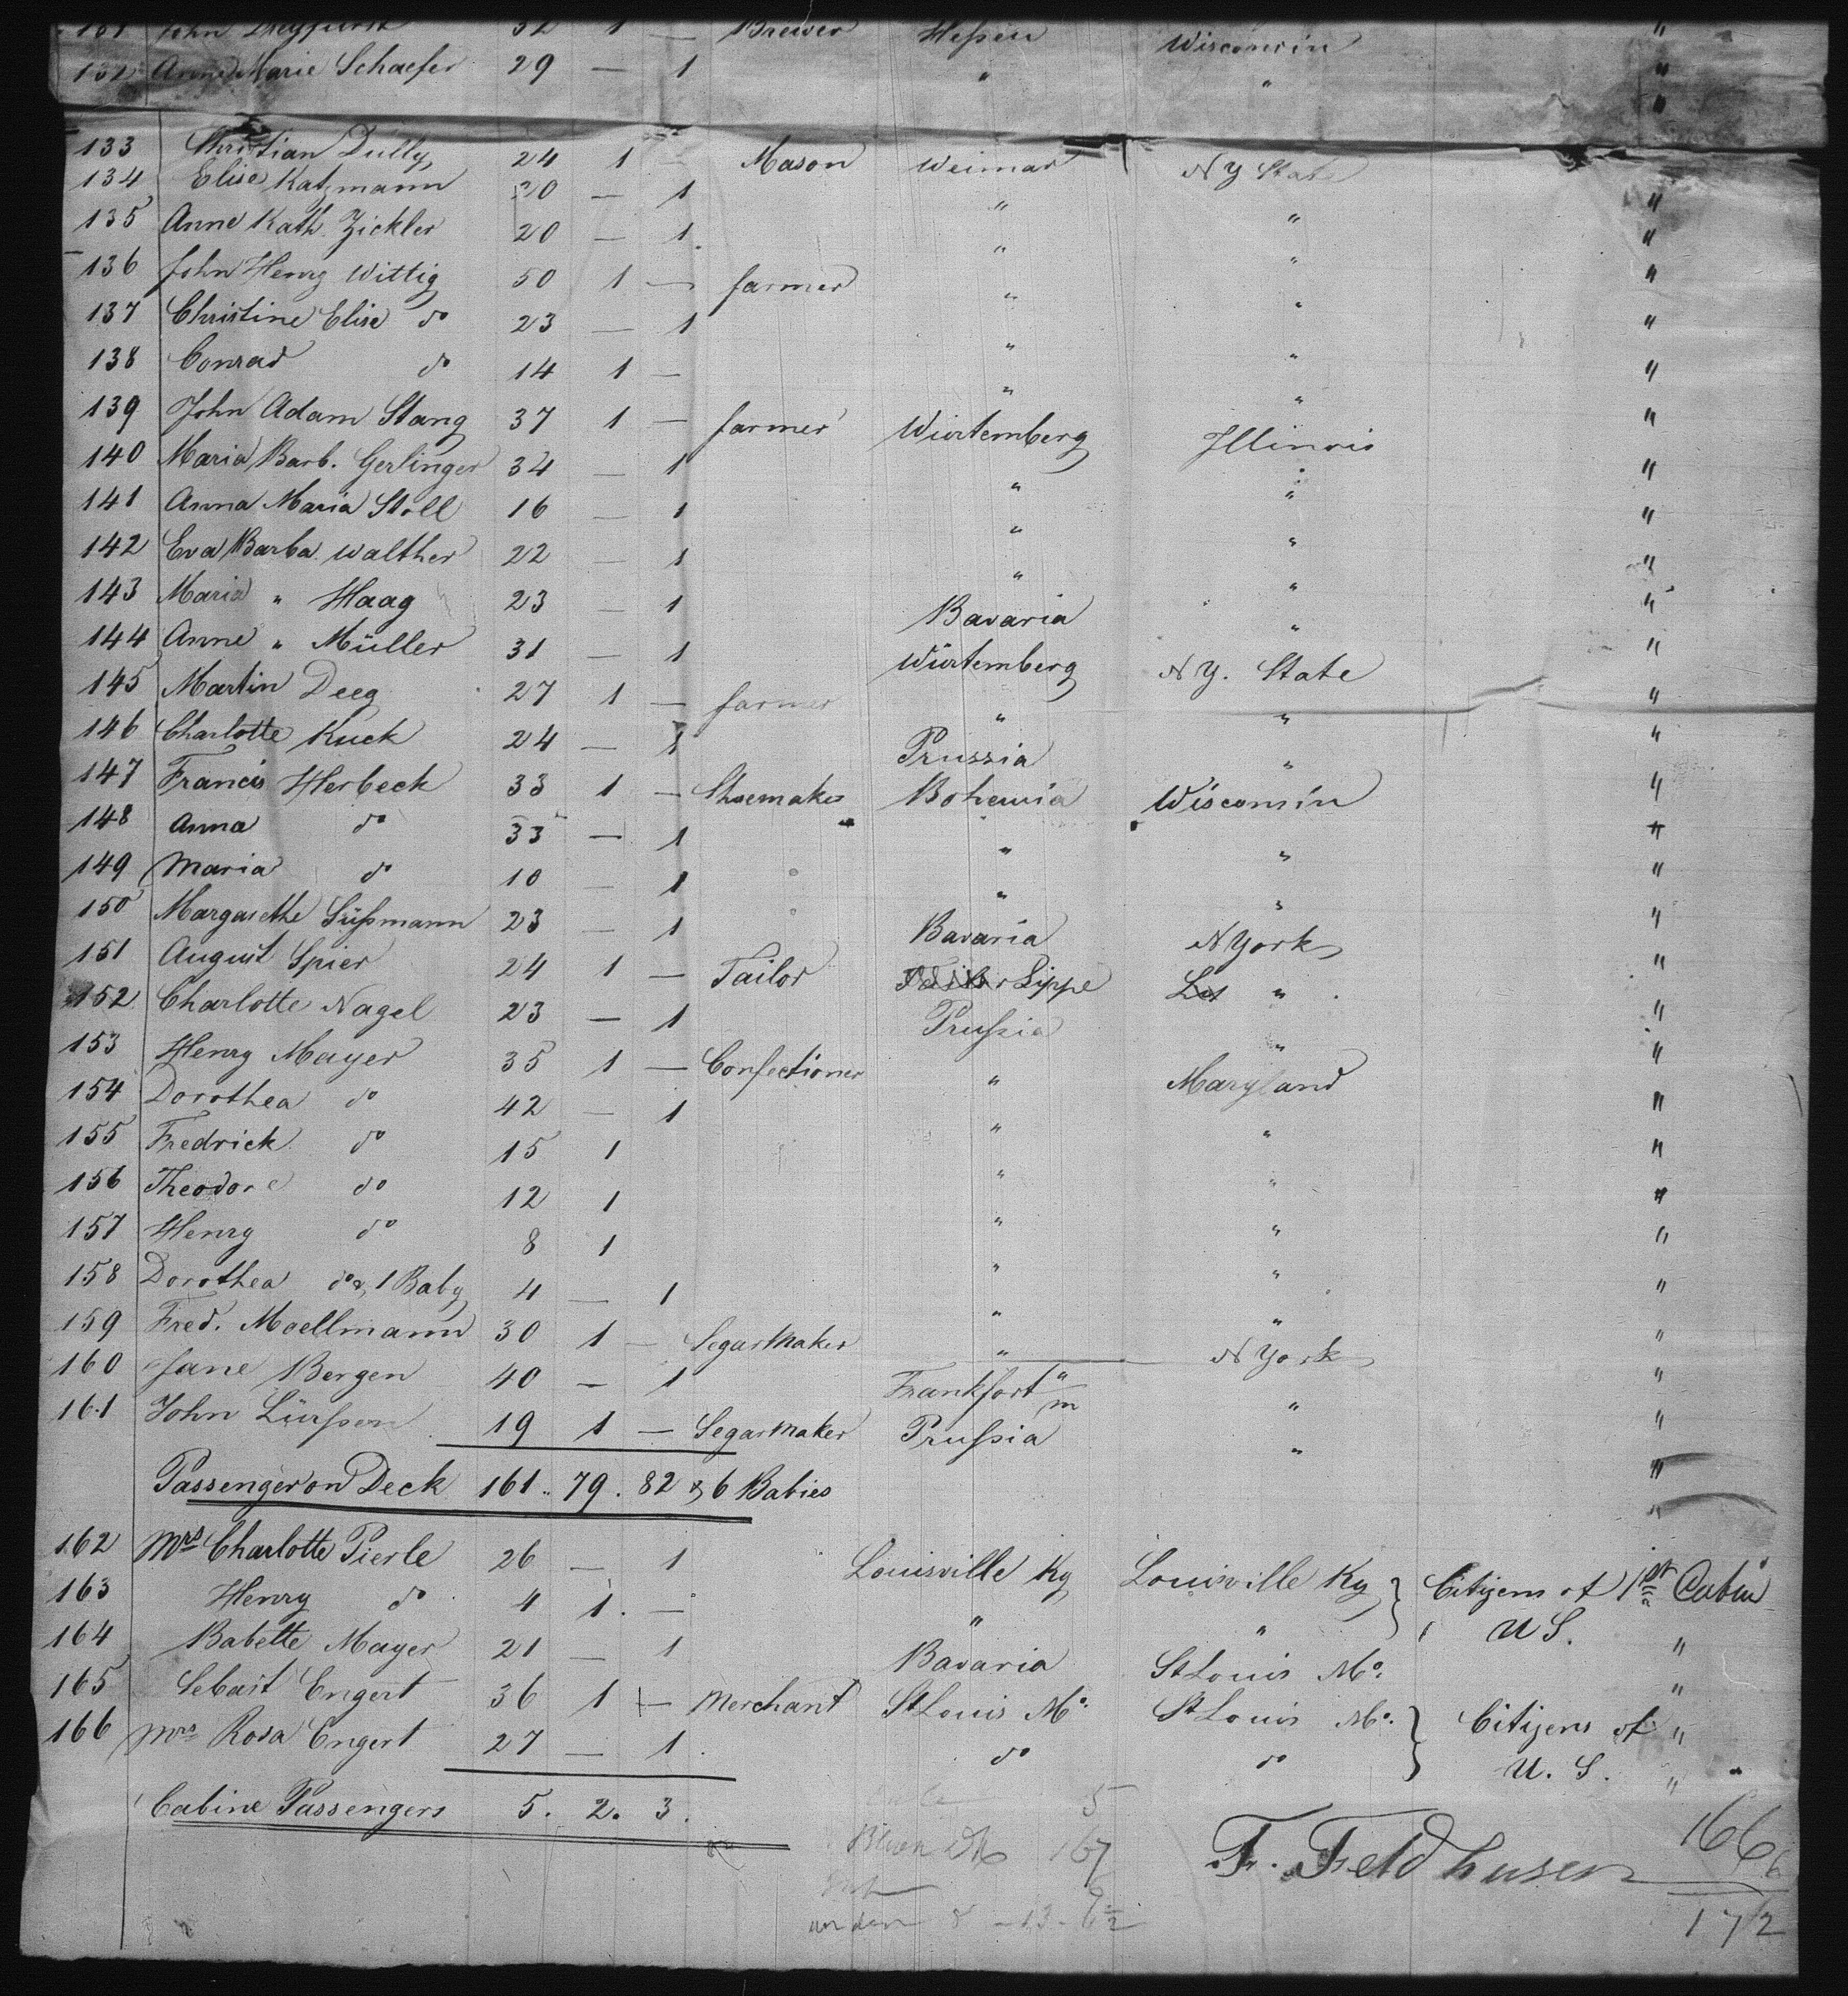 131 John Dreyfürst 32 1 — Brewer Heſsen Wisconsin "
132 Anne Marie Schaefer 29 — 1 " " "
"
133 Christian Dully 24 1 — Mason Weimar NY State
134 Elise Katzmann 20 — 1 " " "
135 Anne Kath. Zickler 20 — 1. " " "
136 John Henry Wittig 50 1 — farmer " " "
137 Christine Elise do 23 — 1 " " "
138 Conrad do 14 1 — " " "
139 John Adam Stang 37 1 — farmer Würtemberg Illinois "
140 Maria Barb. Gerlinger 34 — 1 " " "
141 Anna Maria Stoll 16 — 1 " " "
142 Eva Barba. Walther 22 — 1 " " "
143 Maria " Haag 23 — 1 Bavaria " "
144 Anne " Müller 31 — 1 Würtemberg NY. State "
145 Martin Deeg 27 1 — farmer " " "
146 Charlotte Kuck 24 — 1 Prussia " "
147 Francis Herbeck 33 1 — Shoemaker Bohemia Wisconsin "
148 Anna do 33 — 1 " " "
149 Maria do 10 — 1 " " "
150 Margarethe Süſsmann 23 — 1 Bavaria NYork "
151 August Spier 24 1 — Tailor Lippe " . "
152 Charlotte Nagel 23 — 1 Pruſsia " "
153 Henry Mayer 35 1 — Confectioner " Maryland "
154 Dorothea do 42 — 1 " " "
155 Fredrick do 15 1 " " "
156 Theodore do 12 1 " " "
157 Henry do 8 1 " " "
158 Dorothea do & 1 Baby 4 — 1 " " "
159 Fred. Moellmann 30 1 — Segar Maker " NYork "
160 Jane Bergen 40 — 1 Frankfort a/m " "
161 John Lürſsen 19 1 — Segar Maker Pruſsia " "
Passenger on Deck 161.. 79. 82 & 6 Babies "
"
162 Mrs Charlotte Pierle 26 — 1 Louisville Ky Louisville Ky } Citizens of 1st Cabin
163 Henry do 4 1. — " " U S. "
164 Babette Mayer 21 — 1 Bavaria St Louis Mo. "
165 Sebast Engert 36 1 — Merchant St Louis Mo. St Louis Mo. } Citizens of "
166 Mrs Rosa Engert 27 — 1. do do U. S. "
Cabine Passengers 5. 2. 3.
5
167
F. Feldhusen 166
6
172